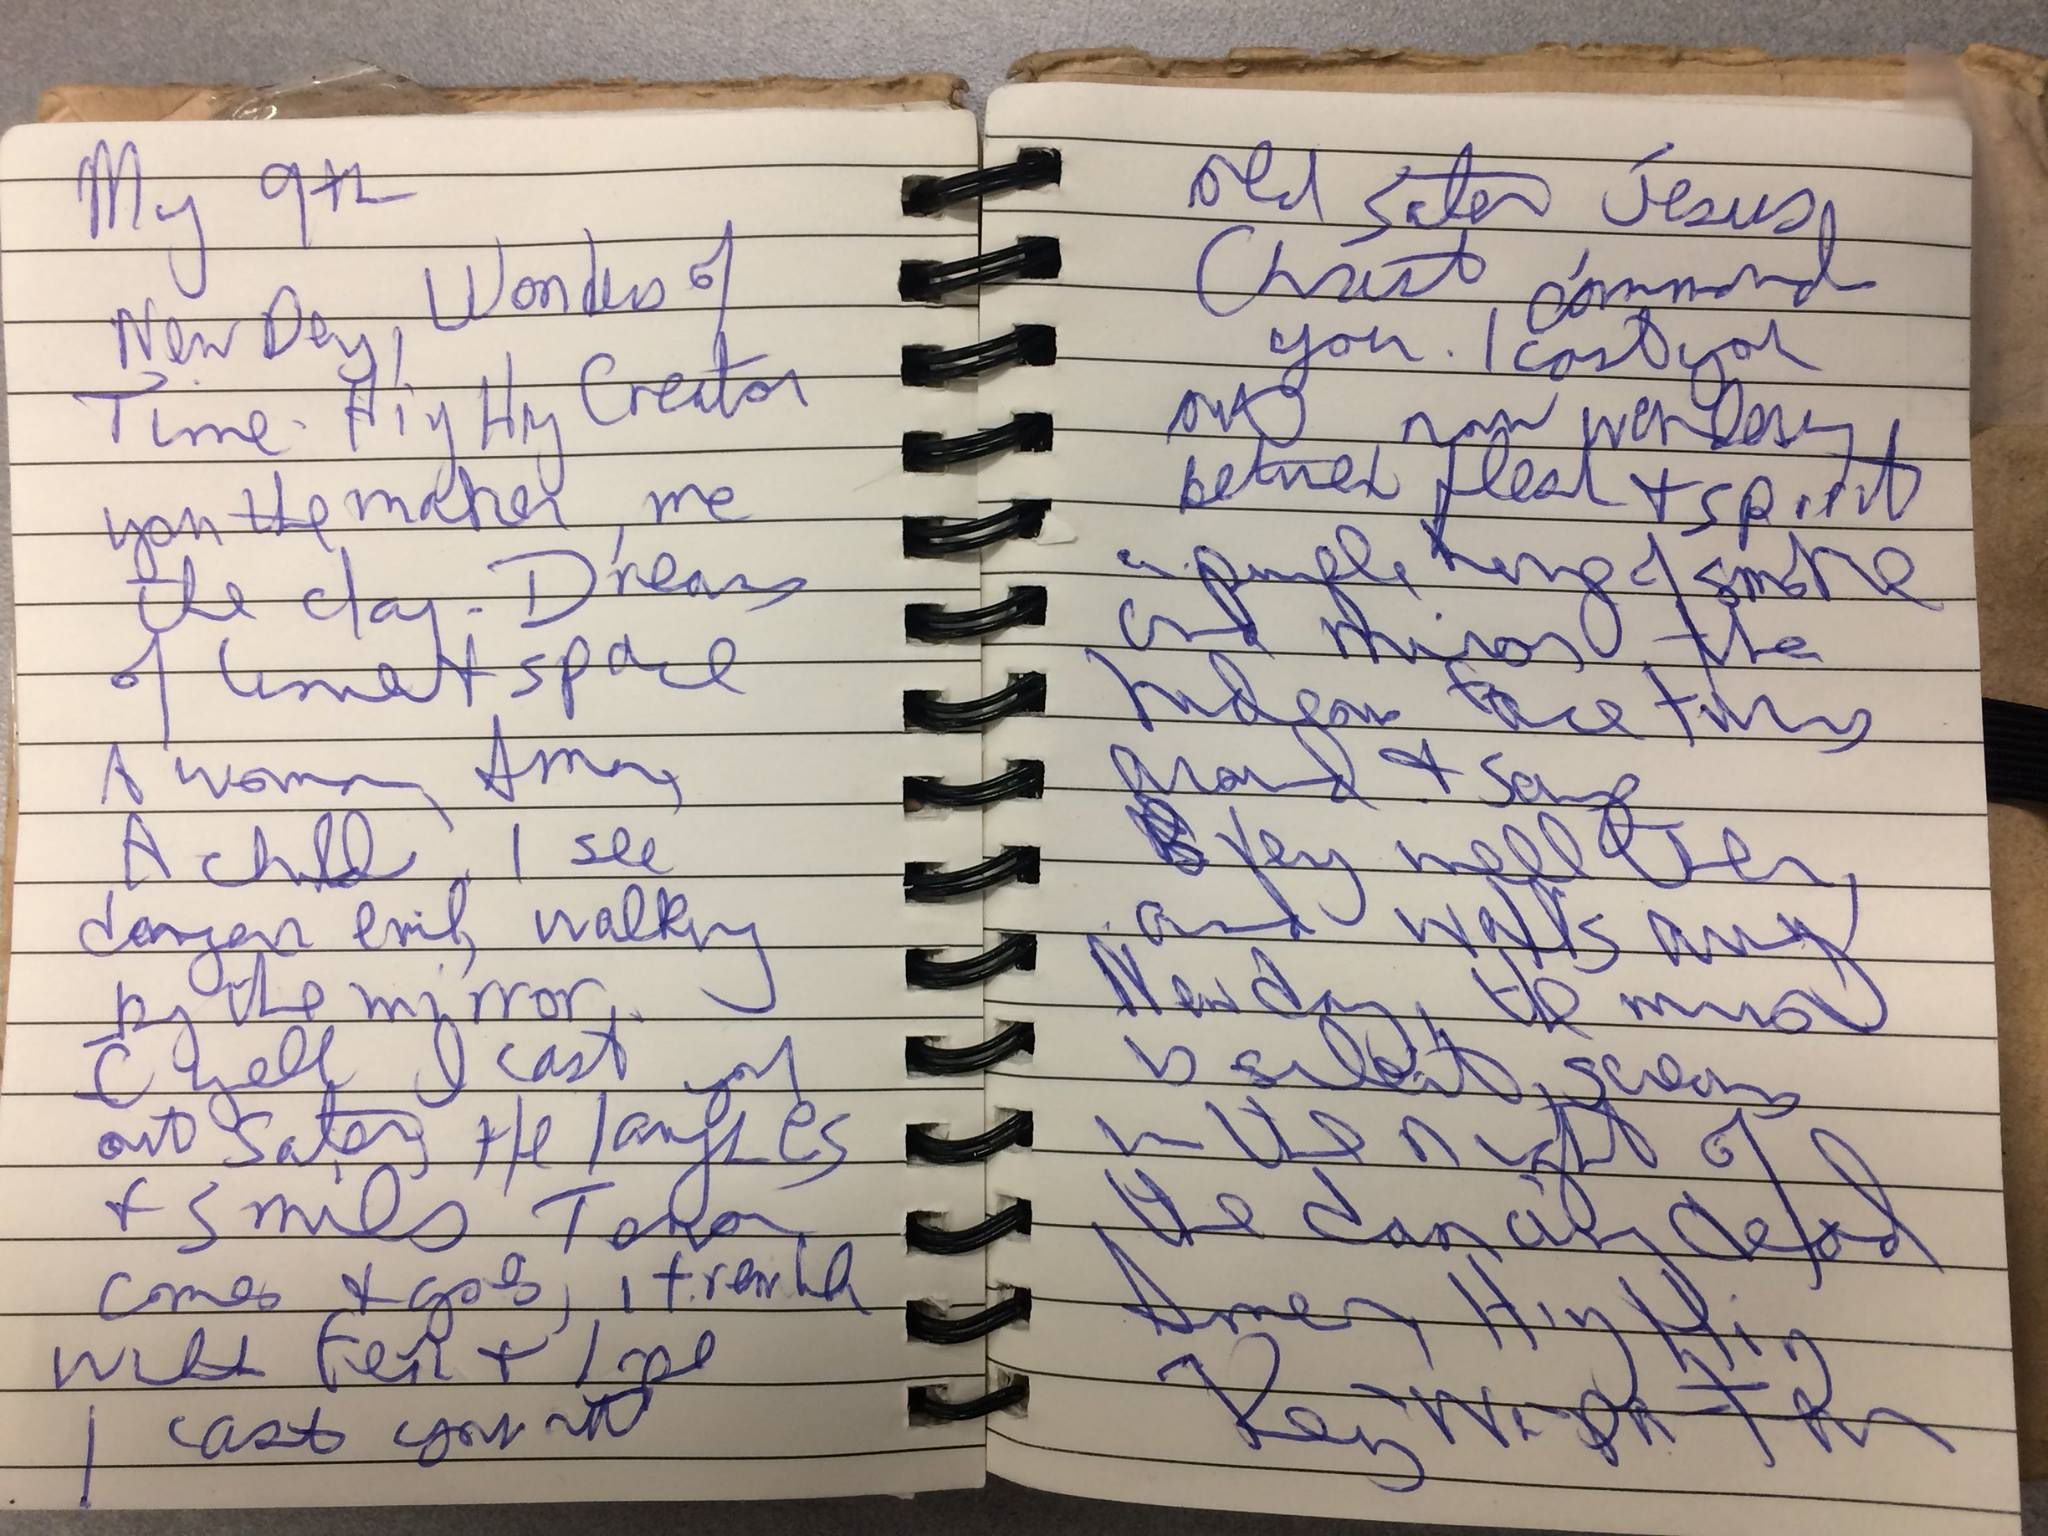 My 9th
New Day, Wonders of
Time. Hiy Hiy Creator
you the maker, me
the clay. Dreams
of time + space
A woman, A man,
A child, I see
danger evil, walking
by the mirror.
I yell I cast you
out Satan, He laughes
+ smiles Terror
comes + goes, I tremble
with fear +
I cast you out
old Satan Jesus,
Christ command
you. I cast you
out now
between flesh + spirit
a purple, being of smoke
and mirros, the
face turns
around + says
Very well then,
and walks away
New day, the mirror
is silent, screams
in the night of
the
Amen, Hiy Hiy